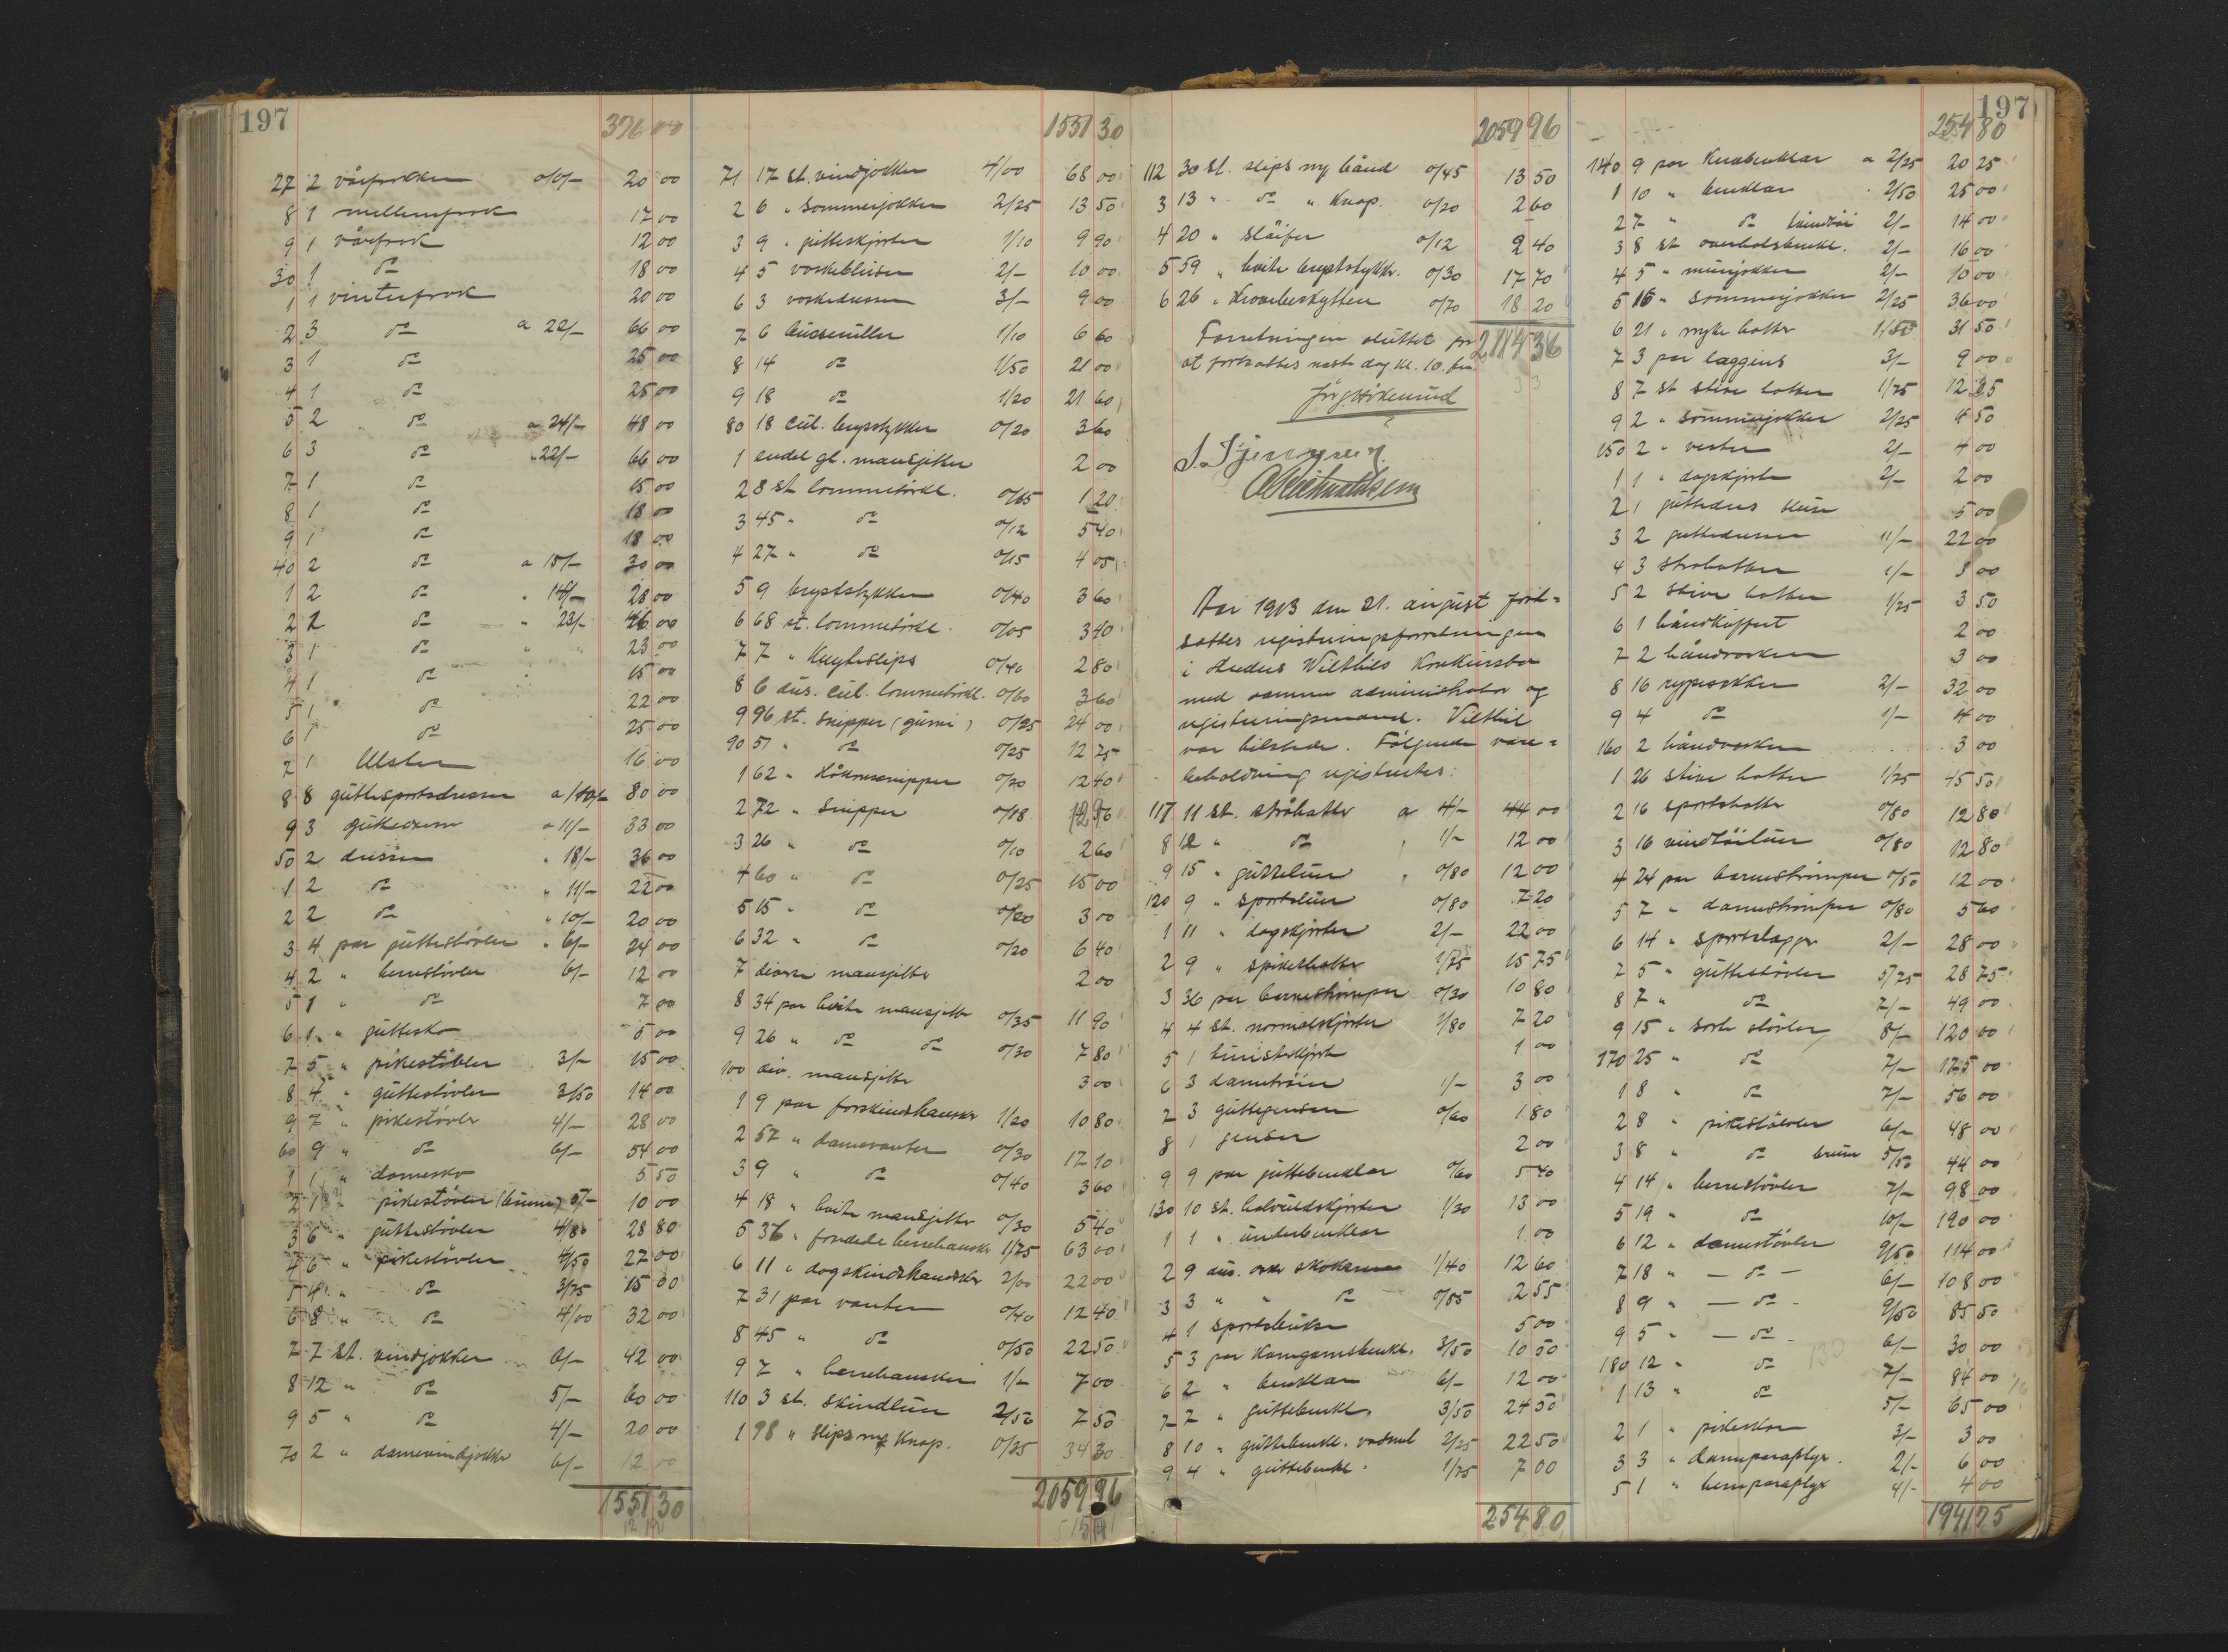 197
376 00
27 2 vårfrakker a 10/- 20 00
8 1 mellemfrak 17 00
9 1 vårfrak 12 00
30 1 do 18 00
1 1 vinterfrak 20 00
2 3 do a 22/- 66 00
3 1 do 25 00
4 1 do 25 00
5 2 do a 24/- 48 00
6 3 do " 22/- 66 00
7 1 do 15 00
8 1 do 18 00
9 1 do 18 00
40 2 do a 15/- 30 00
1 2 do " 14/- 28 00
2 2 do " 23/- 46 00
3 1 do " 23 00
4 1 do 15 00
5 1 do 22 00
6 1 do 25 00
7 1 Ulster 16 00
8 8 güttesportsdresser a 10/- 80 00
9 3 güttedresser a 11/- 33 00
50 2 dresser " 18/- 36 00
1 2 do " 11/- 22 00
2 2 do " 10/- 20 00
3 4 par güttestövler " 6/- 24 00
4 2 " herrestövler 6/- 12 00
5 1 " do 7 00
6 1 " güttesko 5 00
7 5 " pikestövler 3/- 15 00
8 4 " güttestövler 3/50 14 00
9 7 " pikestövler 4/- 28 00
60 9 " do 6/- 54 00
1 1 " damesko 5 50
2 2 " pikestövler (brune) 5/- 10 00
3 6 " güttestövler 4/80 28 80
4 6 " pikestövler 4/50 27 00
5 4 " do 3/75 15 00
6 8 " do 4/00 32 00
7 7 st. vindjakker 6/- 42 00
8 12 " do 5/- 60 00
9 5 " do 4/- 20 00
70 2 " damevindjakker 6/- 12 00
1551 30
1551 30
71 17 st. vindjakker 4/00 68 00
2 6 " sommerjakker 2/25 13 50
3 9 " gütteskjorter 1/10 9 90
4 5 vaskebluser 2/- 10 00
6 3 vaskedresser 3/- 9 00
7 6 buseruller 1/10 6 60
8 14 do 1/50 21 00
9 18 do 1/20 21 60
80 18 cul. brystykker 0/20 3 60
1 endel gl. mansjetter 2 00
2 8 st lommetörkl. 0/15 1 20
3 45 " do 0/12 5 40
4 27 " do 0/15 4 05
5 9 brystykker 0/40 3 60
6 68 st. lommetörkl. 0/05 3 40
7 7 " Knyteslips 0/40 2 80
8 6 dus. cul. lommetörkl. 0/60 3 60
9 96 st. snipper (gümi) 0/25 24 00
90 51 " do 0/25 12 75
1 62 " Håkonsnipper 0/20 12 40
2 72 " Snipper 0/18 12 96
3 26 " do 0/10 2 60
4 60 " do 0/25 15 00
5 15 " do 0/20 3 00
6 32 " do 0/20 6 40
7 diverse mansjetter 2 00
8 34 par hvite mansjetter 0/35 11 90
9 26 " do do 0/30 7 80
100 div. mansjetter 3 00
1 9 par forskindshansker 1/20 10 80
2 57 " damevanter 0/30 17 10
3 9 " do 0/40 3 60
4 18 " hvite mansjetter 0/30 5 40
5 36 " forede herrehansker 1/75 63 00
6 11 " dogskindshandsker 2/00 22 00
7 31 par vanter 0/40 12 40
8 45 " do 0/50 22 50
9 7 " herrehansker 1/- 7 00
110 3 st. skindluer 2/50 7 50
1 98 " slips m/ Knap. 0/35 34 30
2059 96
2059 96
112 30 st. slips m/ bånd 0/45 13 50
3 13 " do " Knap. 0/20 2 60
4 20 " släifer 0/12 2 40
5 59 " hvite brystykker. 0/30 17 70
6 26 " Kravebeskyttere 0/70 18 20
2114 36
Forretningen sluttet for
at fortsættes næste dag kl. 10. fm.
Aar 1913 den 21. august fort-
sattes registreringsforretningen
i Anders Wiltbils Konkursbo
med samme administrator og
registreringsmænd. Viltbil
var tilstede. Følgende vare-
beholdning registrertes:
117 11 st. stråhatter a 4/- 44 00
8 12 " do " 1/- 12 00
9 15 " gütteluer " 0/80 12 00
120 9 " sportsluer 0/80 7 20
1 11 " dagskjorter 2/- 22 00
2 9 " spikehatter 1/75 15 75
3 36 par barneströmper 0/30 10 80
4 4 st. normalskjorter 1/80 7 20
5 1 tennisskjorte 1 00
6 3 dametröier 1/- 3 00
7 3 güttegenser 0/60 1 80
8 1 genser 2 00
9 9 par güttebenklær 0/60 5 40
130 10 st. halvuldskjorter 1/30 13 00
1 1 " underbenklær 1 00
2 9 dus. æsker skokrem 1/40 12 60
3 3 " " do 0/85 2 55
4 1 sportsbukse 5 00
5 3 par Kamgarnsbenkl. 3/50 10 50
6 2 " benklær 6/- 12 00
7 7 " güttebenkl. 3/50 24 50
8 10 " güttebenkl. vadmel 2/25 22 50
9 4 " güttebenkl. 1/75 7 00
254 80
197
254 80
140 9 par Knæbenklær a 2/25 20 25
1 10 " benklær 2/50 25 00
2 7 " do 2/- 14 00
3 8 st overhalsbenkl. 2/- 16 00
4 5 " murjakker 2/- 10 00
5 16 " sommerjakker 2/25 36 00
6 21 " myke hatter 1/50 31 50
7 3 par læggins 3/- 9 00
8 7 st stive hatter 1/75 12 25
9 2 " sommerjakker 2/25 4 50
150 2 " vester 2/- 4 00
1 1 " dagskjorte 2/- 2 00
2 1 güttedres bluse 5 00
3 2 güttedresser 11/- 22 00
4 3 stråhatter 1/- 3 00
5 2 stive hatter 1/75 3 50
6 1 håndkuffert 2 00
7 2 håndvesker 3 00
8 16 rypesekker 2/- 32 00
9 4 do 1/- 4 00
160 2 håndvesker 3 00
1 26 stive hatter 1/75 45 50
2 16 sportshatter 0/80 12 80
3 16 vindtöiluer 0/80 12 80
4 24 par barneströmper 0/50 12 00
5 7 " dameströmper 0/80 5 60
6 14 " sportslægger 2/- 28 00
7 5 " güttestövler 5/75 28 75
8 7 " do 7/- 49 00
9 15 " sorte støvler 8/- 120 00
170 25 " do 7/- 175 00
1 8 " do 7/- 56 00
2 8 " pikestövler 6/- 48 00
3 8 " do brune 5/50 44 00
4 14 " herrestövler 7/- 98 00
5 19 " do 10/- 190 00
6 12 " damestövler 9/50 114 00
7 18 " - do - 6/- 108 00
8 9 " - do - 9/50 85 50
9 5 " - do - 6/- 30 00
180 12 " do 7/- 84 00
1 13 " do 5/- 65 00
2 1 " pikesko 3/- 3 00
3 3 " dameparaplyer. 2/- 6 00
5 1 " herreparaply 4/- 4 00
1941 75